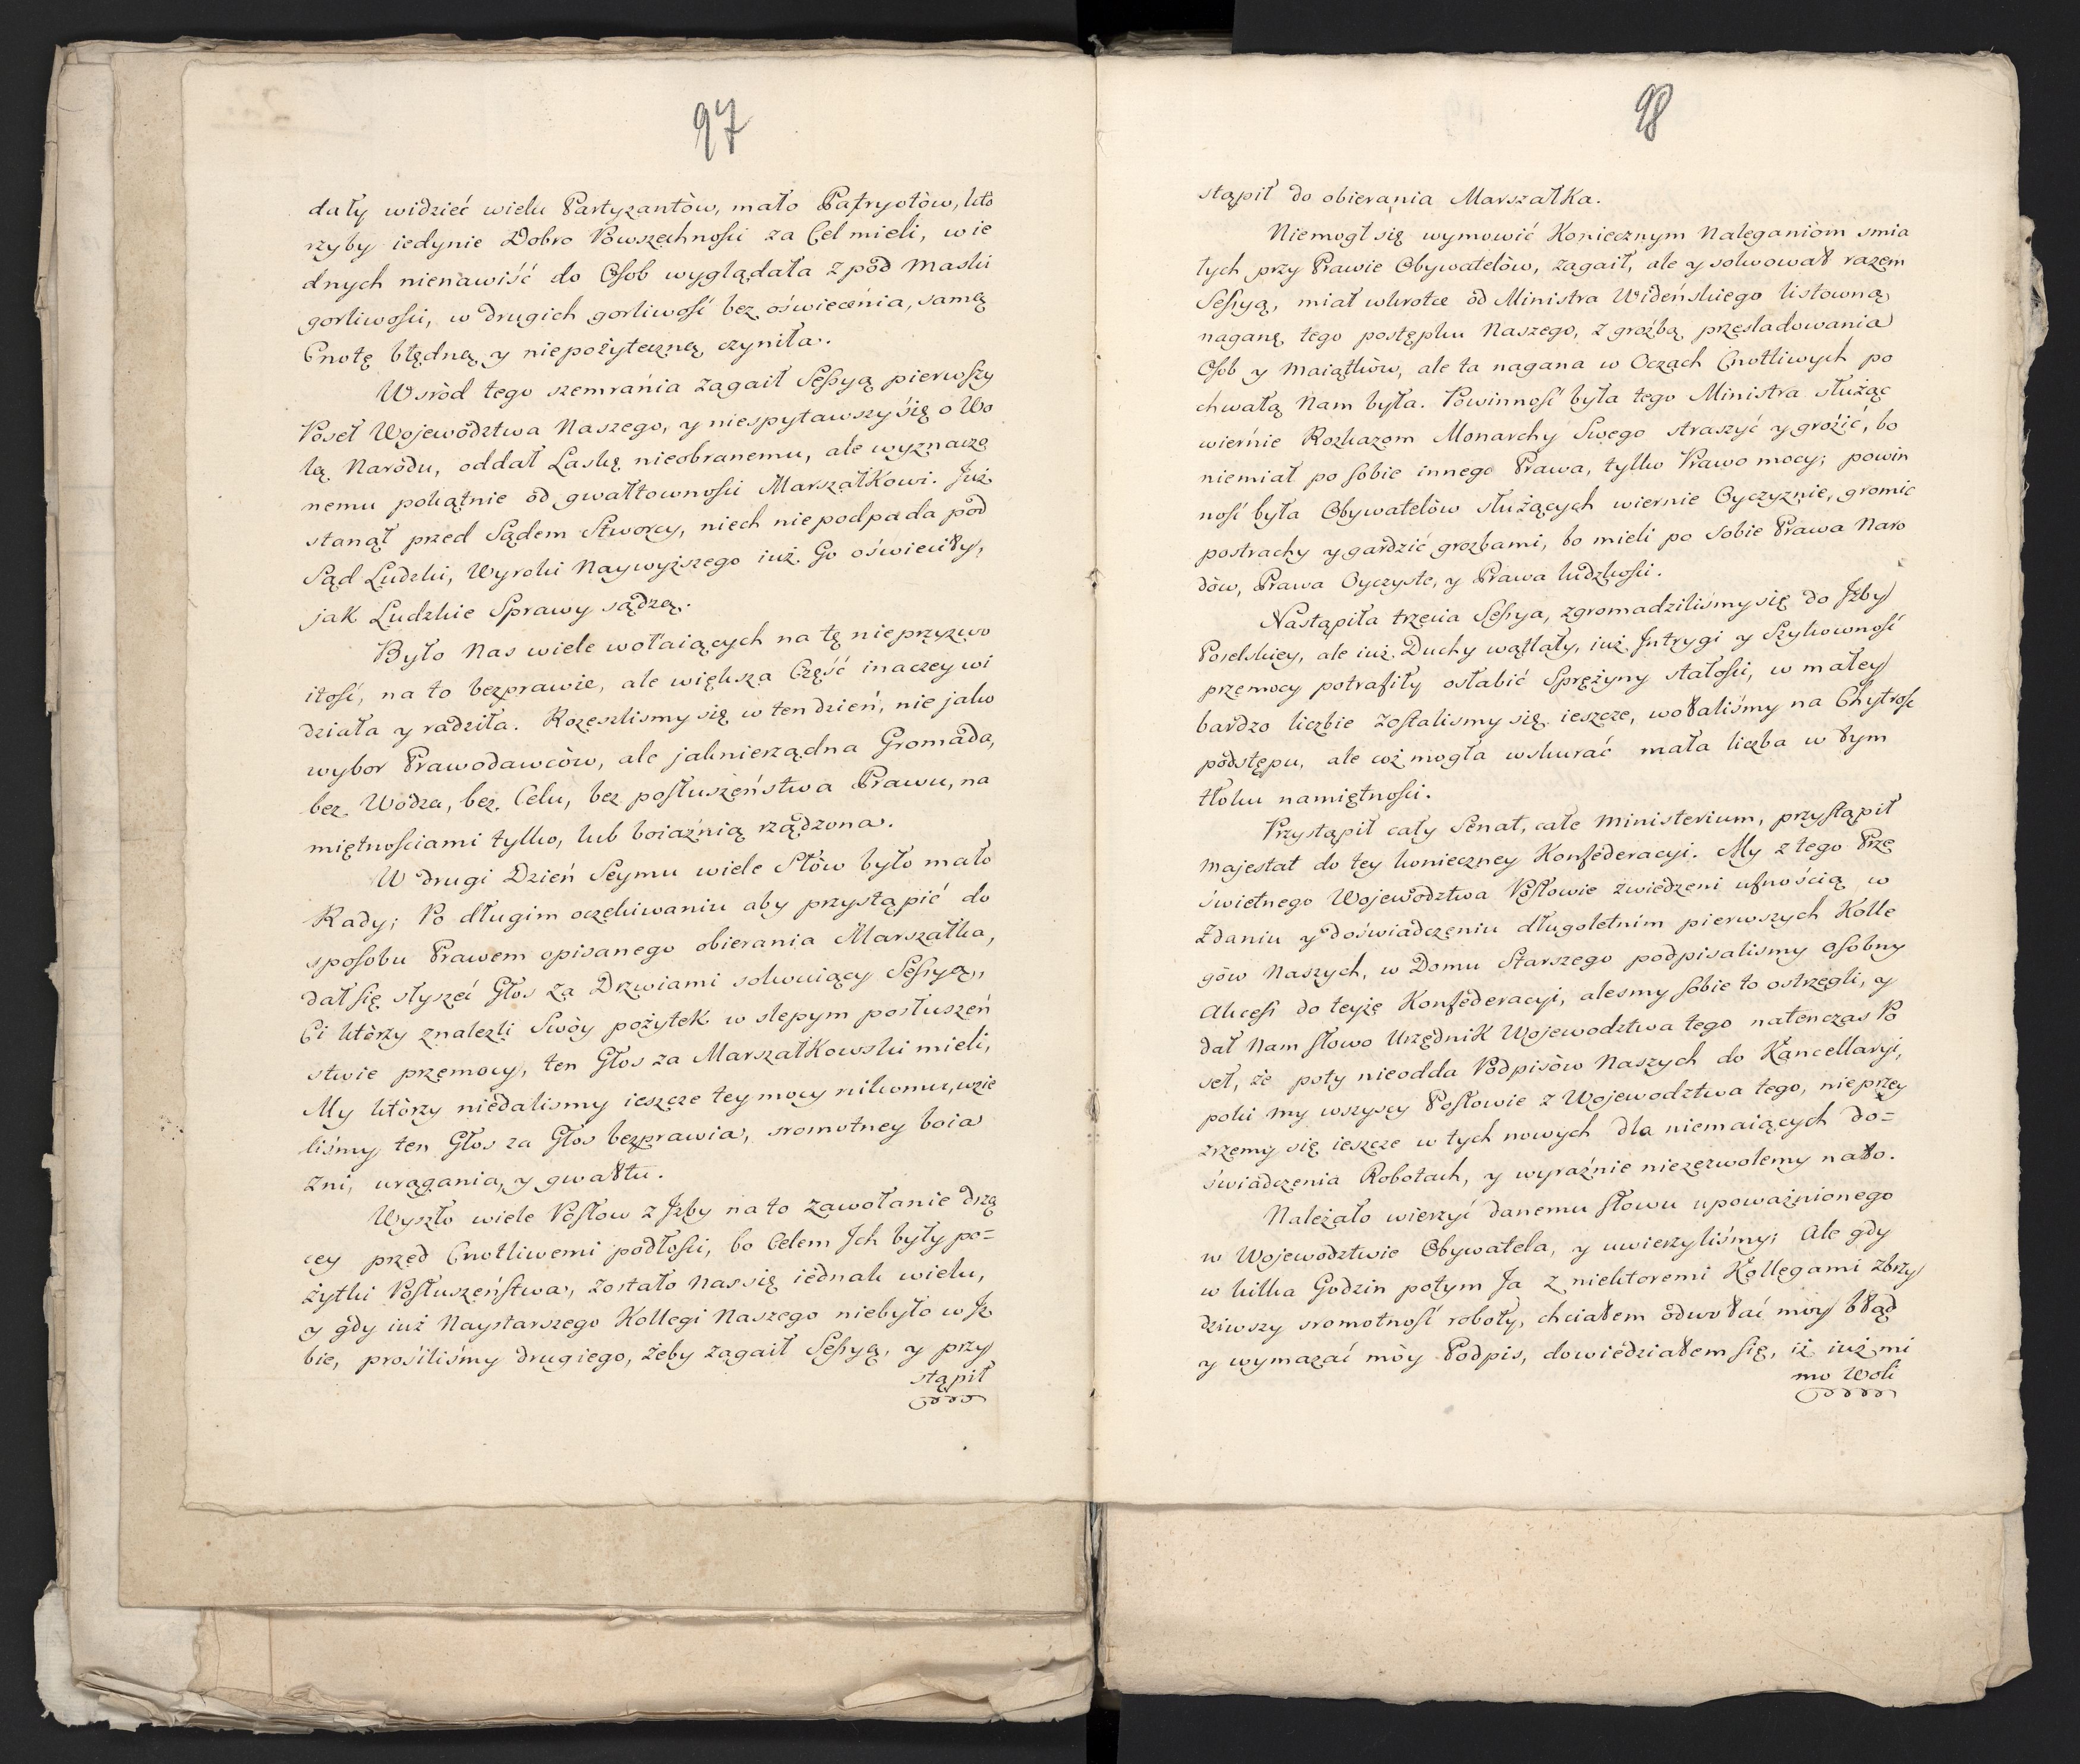 97
dały widzieć wielu Partyzantòw, mało Patryotòw, któ
rzyby iedynie Dobro Powszechności za Cel mieli, w ie
dnych nienawiść do Osob wyglądała z pod Maski
gorliwości, w drugich gorliwość bez oświecenia, samą
Cnotę błędną y niepożyteczną czyniła.
Wsròd tego szemrania zagaił Sessyą pierwszy
Poseł Wojewòdztwa Naszego, y niespytawszy się o Wo
lą Narodu, oddał Laskę nieobranemu, ale wyznaczo
nemu pokątnie od gwałtowności Marszałkowi. Już
stanął przed Sądem Stworcy, niech nie podpada pod
Sąd Ludzki, Wyroki Naywyższego iuż Go oświeciły,
jak Ludzkie Sprawy sądzą.
Było Nas wiele wołaiących na tę nieprzyzwo
itość, na to bezprawie, ale większa Część inaczey wi
działa y radziła. Rozeszlismy się w ten dzień, nie jako
wybor Prawodawcòw, ale jak nierządna Gromada,
bez Wodza, bez Celu, bez posłuszeństwa Prawu, na
miętnościami tylko, lub boiaźnią rządzona.
W drugi Dzień Seymu wiele Słòw było mało
Rady; Po długim oczekiwaniu aby przystąpić do
sposobu Prawem opisanego obierania Marszałka,
dał się słyszeć Głos za Drzwiami solwuiący Sessyą,
Ci ktòrzy znalezli Swòy pożytek w slepym posłuszeń
stwie przemocy, ten Głos za Marszałkowski mieli,
My ktòrzy niedalismy ieszcze tey mocy nikomu, wzie
liśmy ten Głos za Głos bezprawia, sromotney boia
zni, urągania, y gwałtu.
Wyszło wiele Posłow z Jzby na to zawołanie drzą
cey przed Cnotliwemi podłości, bo Celem Jch były po=
żytki Posłuszeństwa, zostało nas się iednak wielu,
y gdy iuż Naystarszego Kollegi Naszego niebyło w Jz
bie, prosiliśmy drugiego, żeby zagaił Sessyą, y przy
stąpił
98
stąpił do obierania Marszałka.
Niemogł się wymowić Koniecznym Naleganiom smia
łych przy Prawie Obywatelòw, zagaił, ale y solwował razem
Sessyą, miał wkrotce od Ministra Wideńskiego listowną
naganę tego postępku Naszego, z groźbą przesladowania
Osob y Maiątkòw, ale ta nagana w Oczach Cnotliwych po
chwałą Nam była. Powinność była tego Ministra służąc
wiernie Rozkazom Monarchy Swego straszyć y grozić, bo
niemiał po sobie innego Prawa, tylko Prawo mocy; powin
ność była Obywatelòw służących wiernie Oyczyznie, gromić
postrachy y gardzić grozbami, bo mieli po sobie Prawa Naro
dòw, Prawa Oyczyste, y Prawa ludzkości.
Nastąpiła trzecia Sessya, zgromadzilismy się do Jzby
Poselskiey, ale iuż Duchy wątlały, iuż Jntrygi y Szykowność
przemocy potrafiły osłabić Sprężyny stałości, w małey
bardzo liczbie zostalismy się ieszcze, wołaliśmy na Chytrość
podstępu, ale coż mogła wskurać mała liczba w tym
tłoku namiętności.
Przystąpił cały Senat, całe Ministerium, przystąpił
Majestat do tey konieczney Konfederacyi. My z tego Prze
świetnego Wojewòdztwa Posłowie zwiedzeni ufnością w
Zdaniu y doświadczeniu długoletnim pierwszych Kolle
gòw Naszych, w Domu Starszego podpisalismy osobny
Akcess do teyże Konfederacyi, alesmy sobie to ostrzegli, y
dał Nam słowo Urzędnik Wojewodztwa tego natenczas Po
seł, że poty nieodda Podpisòw Naszych do Kancellaryi,
poki my wszyscy Posłowie z Wojewodztwa tego, nie przey
zrzemy się ieszcze w tych nowych dla niemaiących do=
świadczenia Robotach, y wyraźnie niezezwolemy na to.
Należało wierzyć danemu słowu upoważnionego
w Wojewodztwie Obywatela, y uwierzyliśmy; Ale gdy
w kilka Godzin potym Ja z niektoremi Kollegami zbrzy
dziwszy sromotność roboty, chciałem odwołać moy błąd
y wymazać mòy Podpis, dowiedziałem się, iż iuż mi
mo Woli